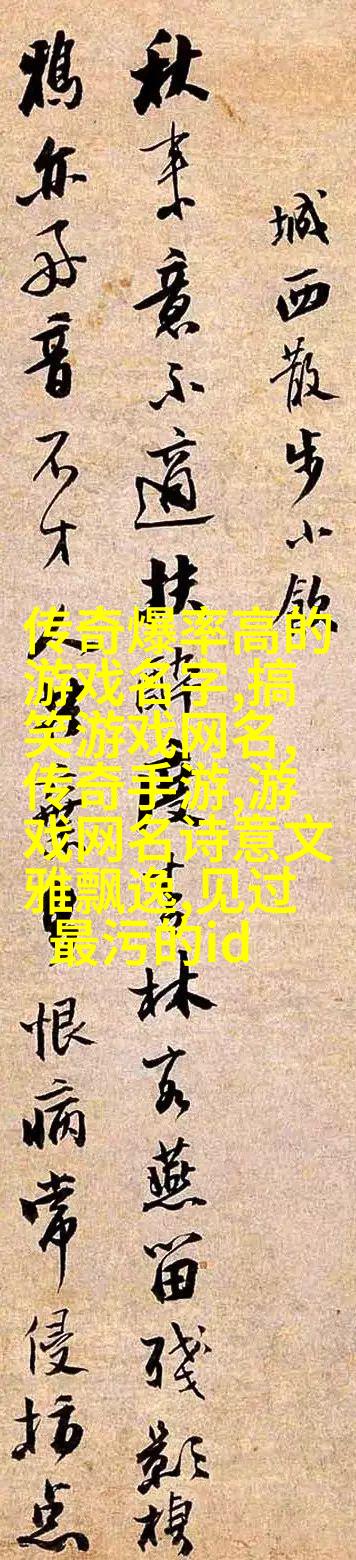 城西散步小飲
秋来意不適扶醉度青林客燕留残影
鴉亦好音不才人恨病常侵拚点
传奇爆率高的
游戏名字,搞
笑游戏网名,
传奇手游,游
戏网名诗意文
雅飘逸,见过
最污的id